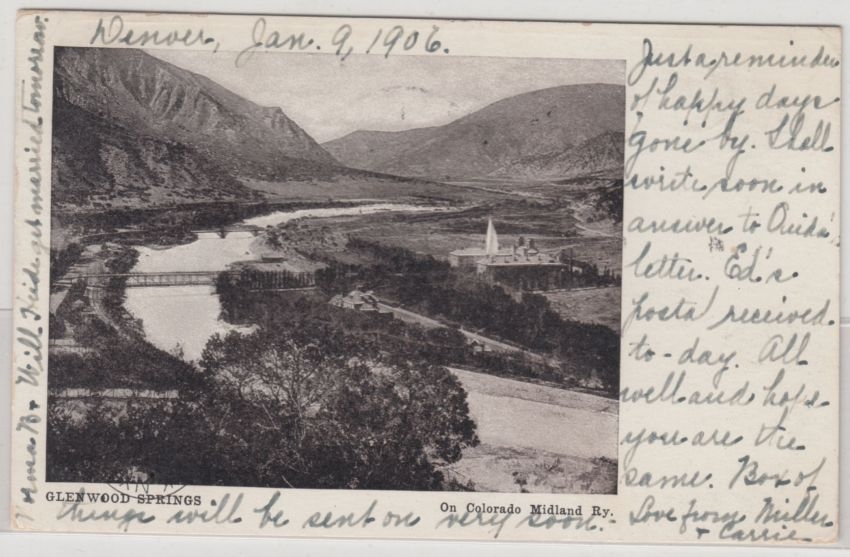 Denver, Jan. 9, 1906.
Just a reminder
of happy days
gone by. Shall
write soon in
answer to Ouida's
letter. Ed's
postal received
to-day. All
well and hope
you are the
same. Box of
things will be sent on very soon.-
Love from Miller
+ Carrie
B + Will get married tomorrow.
GLENWOOD SPRINGS
On Colorado Midland Ry.